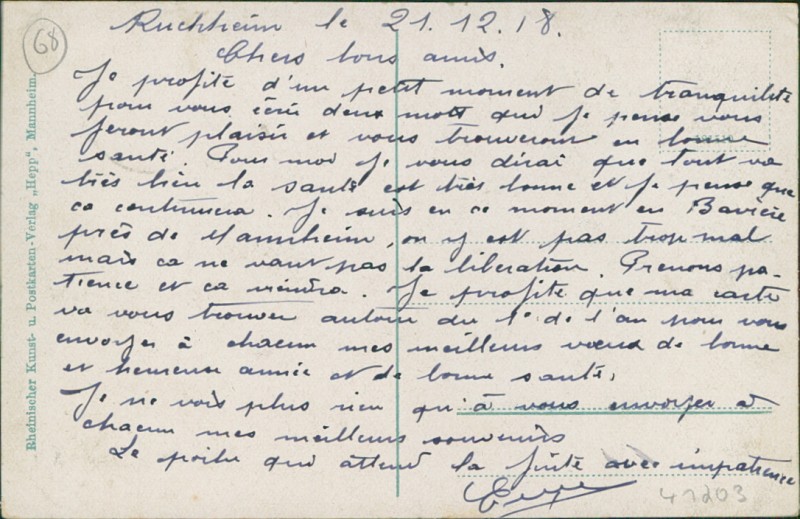 68
Ruchheim le 21.12.18.
Chers tous amis.
Je profite d'un petit moment de tranquilité
pour vous écrir deux mott qui je pense vous
feront plaisir et vous trouveront en bonne
santé. Pour moi je vous dirai que tout va
très bien la santé est très bonne et je pense que
ca continuera. Je suis en ce moment en Bavière
près de Mannheim, on y est pas trop mal
mais ca ne vaut pas la liberation. Prenons pa-
tience et ca viendra. Je profite que ma carte
va vous trouver autour du 1er de l'an pour vous
envoyer à chacun mes meilleurs vœux de bonne
et heureuse année et de bonne santé.
Je ne vois plus rien qu'à vous envoyer à
chacun mes meilleurs souvenirs
Le poilu qui attend la fuite avec impatience
41203
Rheinischer Kunst- u. Postkarten-Verlag „Hepp", Mannheim.